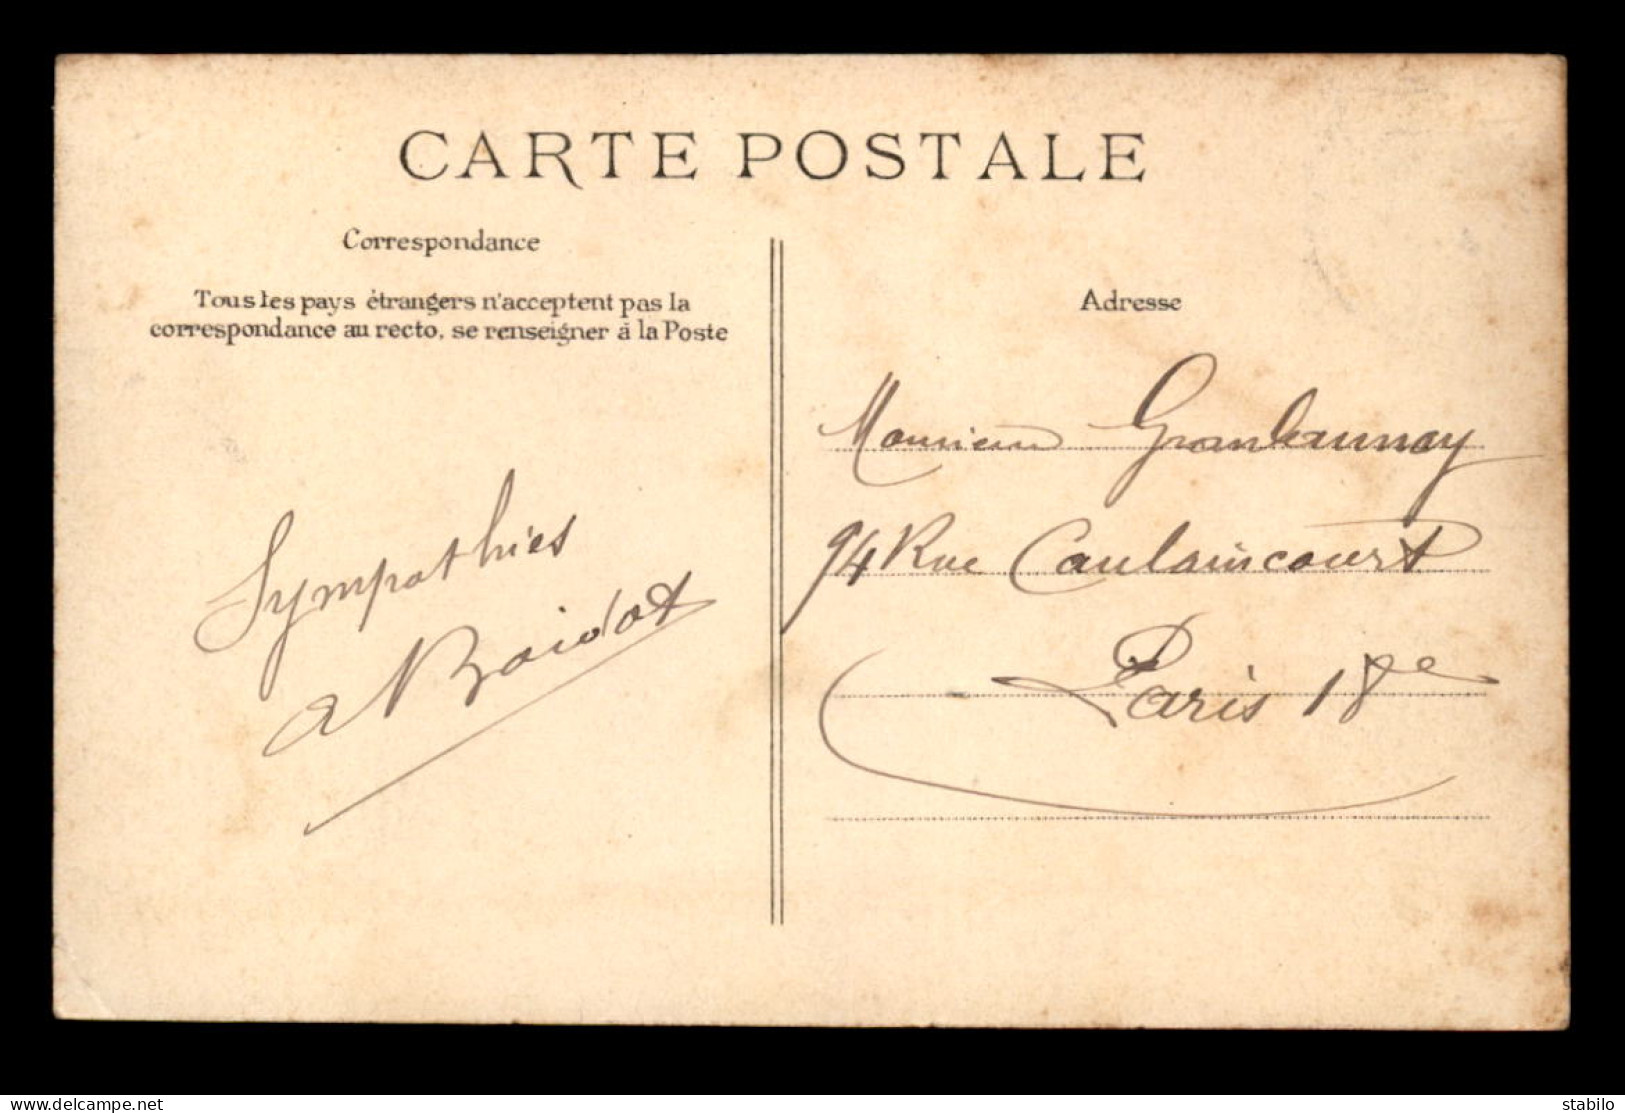 CARTE POSTALE
Correspondance
Tous les pays étrangers n'acceptent pas la
correspondance au recto, se renseigner à la Poste
Sympathies
A Boidot
Adresse
Monsieur
94 Rue Caulaincourt
Paris 18e
www.delcampe.net
stabilo